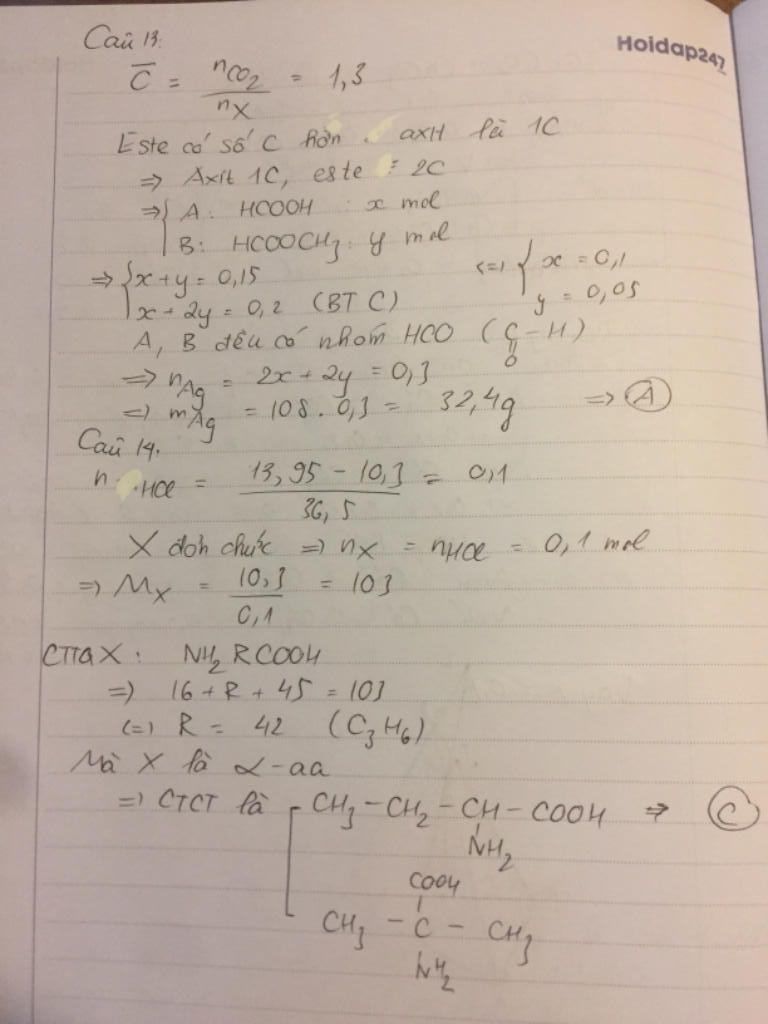 Câu 13:
Hoidap247
C̅ = nCO₂ / nX = 1,3
Este có số C hơn axit là 1C
⇒ Axit 1C, este : 2C
⇒ { A : HCOOH : x mol
B : HCOOCH₃ : y mol
⇒ { x + y = 0,15 <=> { x = 0,1
x + 2y = 0,2 (BT C) y = 0,05
A, B đều có nhóm HCO (C – H)
O
⇒ nAg = 2x + 2y = 0,3
⇒ mAg = 108 . 0,3 = 32,4g ⇒ A
Câu 14.
n HCl = 13,95 – 10,3 / 36,5 = 0,1
X đơn chức ⇒ nX = nHCl = 0,1 mol
⇒ MX = 10,3 / 0,1 = 103
CTTQ X : NH₂RCOOH
⇒ 16 + R + 45 = 103
(=) R = 42 (C₃H₆)
Mà X là α-aa
⇒ CTCT là [ CH₃ – CH₂ – CH – COOH ⇒ C
NH₂
COOH
CH₃ – C – CH₃
NH₂